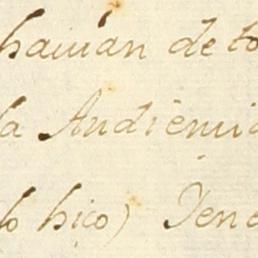 haiúan de to
la Audiencia
lo hiço) Tene